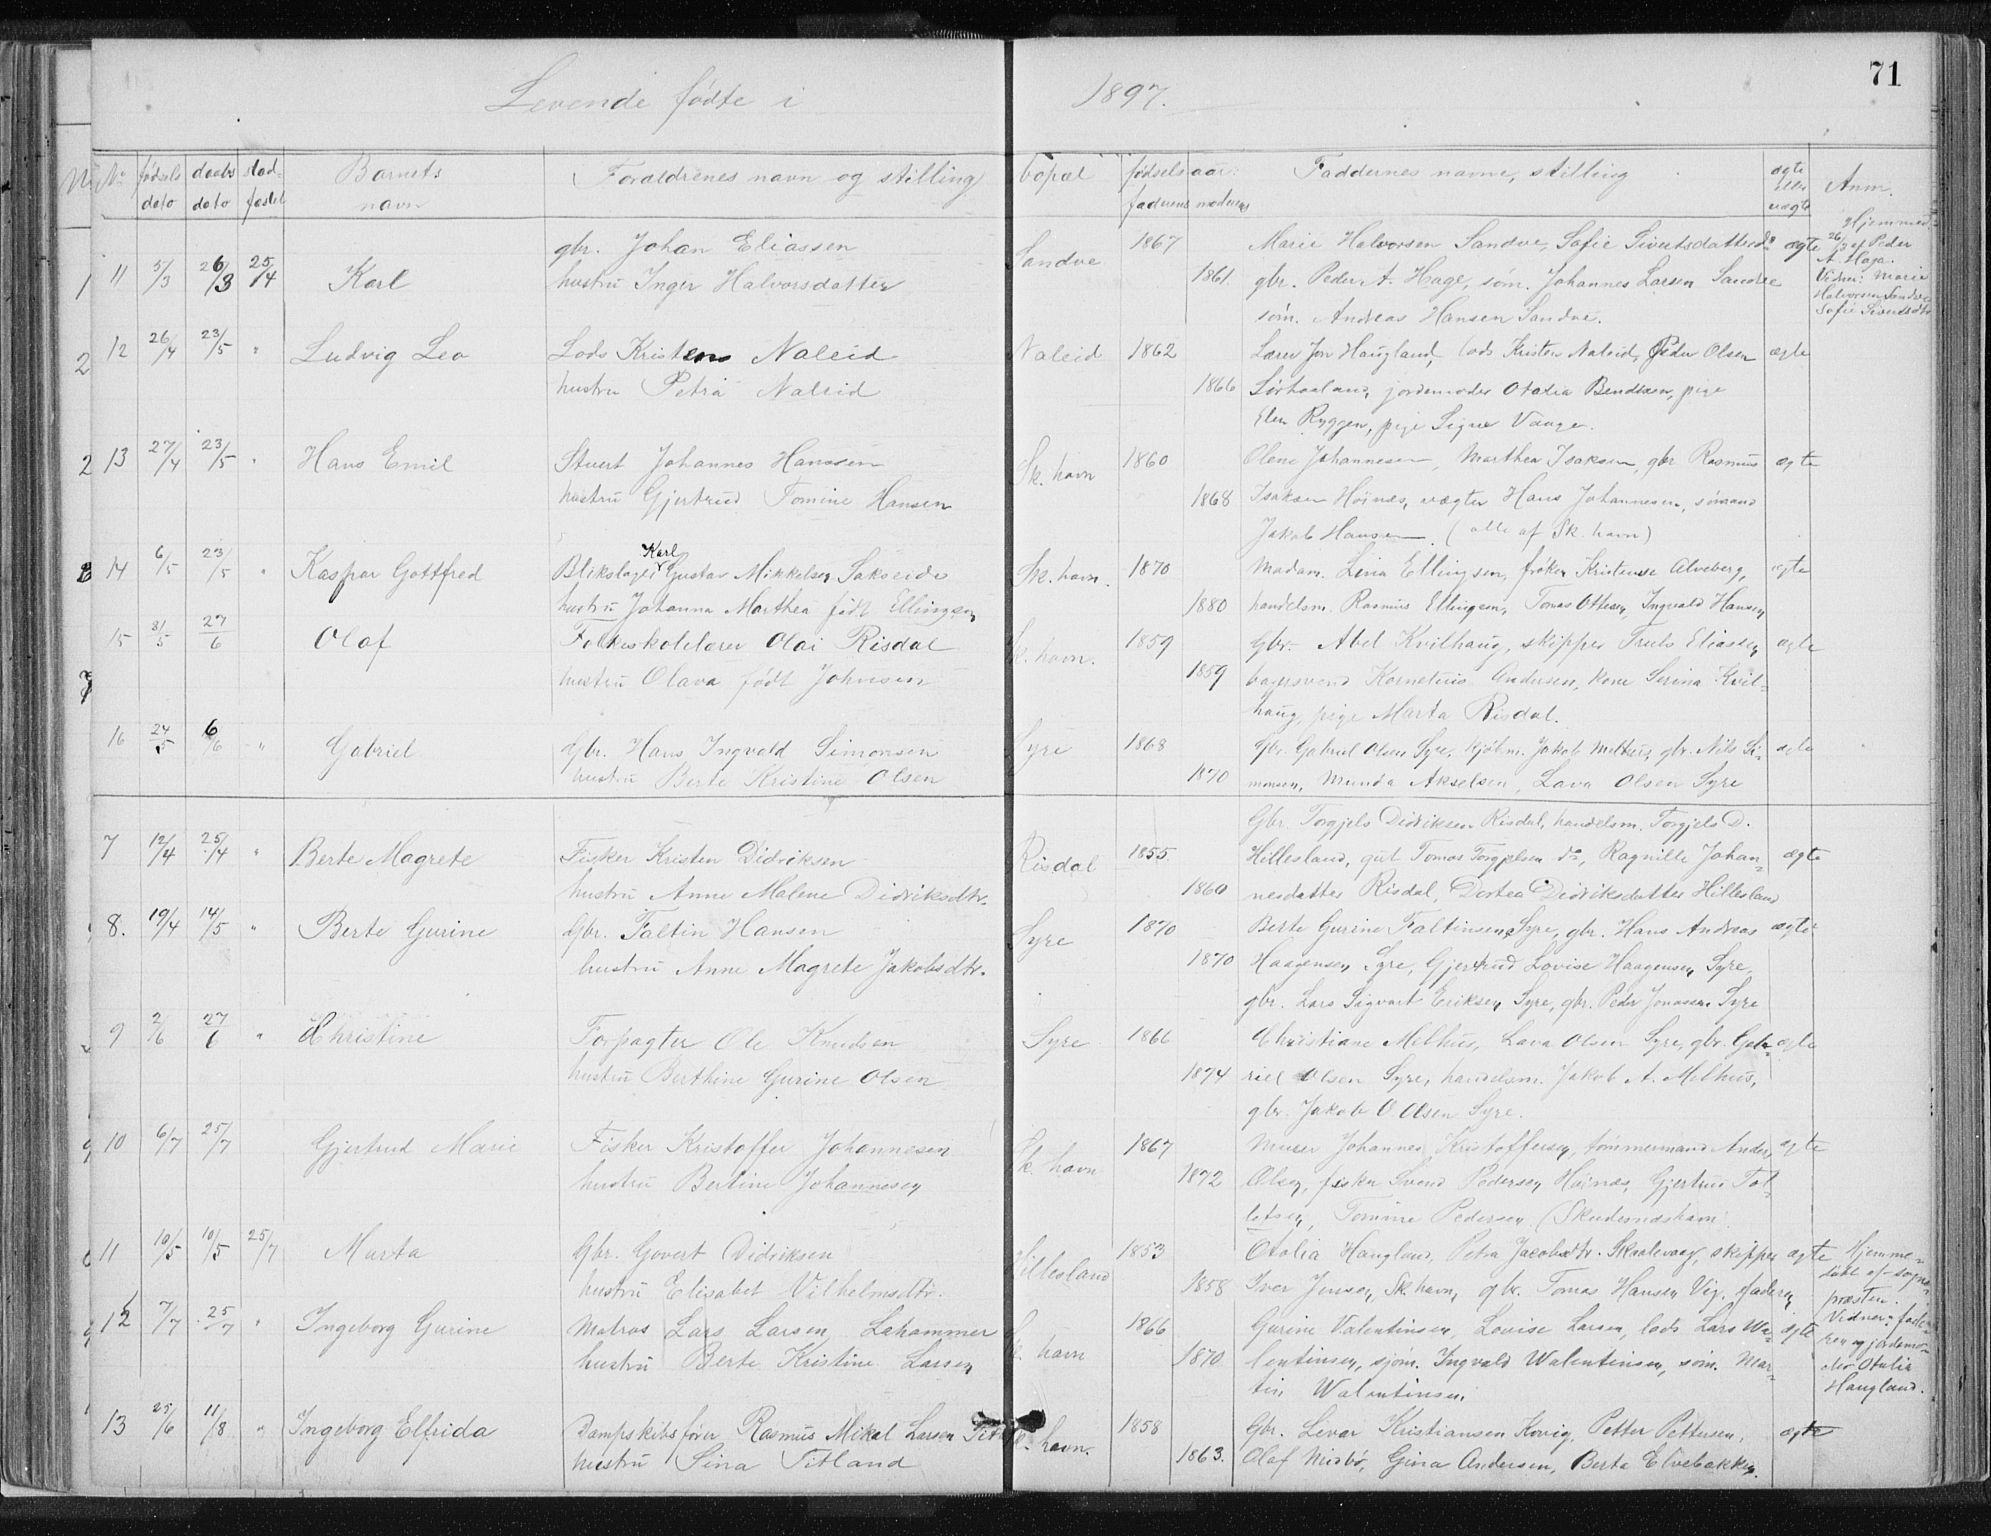 71
Levende fødte i 1897.
No fødsels dato daabs dato stad- fæstet Barnets navn Forældrenes navn og stilling bopæl fødselsaar: faderens moderens Faddernes navne, stilling ægte eller uægte Anm.
11 5/3 26/3 25/4 Karl
gbr. Johan Eliassen
hustru Inger Halvorsdatter
Sandve 1867 1861.
Marie Halvorsen Sandve, Sofie Sivertsdatter do ægte
gbr. Peder A. Hage, søm. Johannes Larsen Sandve
søm. Andreas Hansen Sandve.
Hjemmed.
26/3 af Peder
A. Haga.
Vidn: Marie
Halvorsen Sandve
Sofie Sivertsdtr
12 26/4 23/5 " Ludvig Leo
Lods Kristen Naleid
hustru Petra Naleid
Naleid 1862 1866
Lærer Jon Haugland, lods Kristen Naleid, Peder Olsen ægte
Sørhaaland, jordemoder Otalia Bendixen, pige
Elen Ryggen, pige Signe Vaage.
13 27/4 23/5 " Hans Emil
Stuert Johannes Hanssen
hustru Gjertrud Tomine Hansen
Sk. havn 1860 1868
Olene Johannesen, Marthea Isaksen, gbr Rasmus ægte
Isaksen Høinæs, vægter Hans Johannesen, sømand
Jakob Hansen. (alle af Sk. havn)
14 6/5 23/5 " Kaspar Gottfred
Blikslager Karl Gustav Mikkelsen Sakseide
hustru Johanna Marthea født Ellingsen
Sk. havn. 1870 1880
Madam. Lina Ellingsen, frøken Kristense Alveberg, ægte
handelsm. Rasmus Ellingsen, Tomas Ottesen, Ingvald Hansen
15 31/5 27/6 Olaf
Folkeskolelærer Olai Risdal
hustru Olava født Johnsen
Sk. havn. 1859 1859
Gbr. Abel Kvilhaug, skipper Truls Eliassen ægte
bagersvend Kornelius Andersen, kone Serina Kvil-
haug, pige Marta Risdal.
16 24/5 6/6 " Gabriel
Gbr. Hans Ingvald Simonsen
hustru Berte Kristine Olsen
Syre 1868 1870
Gbr. Gabriel Olsen Syre, kjøbm. Jakob Melhus, gbr. Nils Si- ægte
monsen, Munda Akselsen, Lava Olsen Syre
7 12/4 25/4 " Berte Magrete
Fisker Kristen Didriksen
hustru Anne Malene Didriksdtr.
Risdal 1855. 1860
Gbr. Torgjels Didriksen Risdal, handelsm. Torgjels D.
Hillesland, gut Tomas Torgjelsen do, Ragnille Johan- ægte
nesdatter Risdal, Dortea Didriksdatter Hillesland
8. 19/4 14/5 " Berte Gurine
Gbr. Faltin Hansen
hustru Anne Magrete Jakobsdtr.
Syre 1870 1870
Berte Gurine Faltinsen Syre, gbr. Hans Andreas ægte
Haagensen Syre, Gjertrud Lovise Haagensen Syre,
gbr. Lars Sigvart Eriksen Syre, gbr. Peder Jonassen Syre
9 2/6 27/6 " Christine
Forpagter Ole Knudsen
hustru Berthine Gurine Olsen
Syre 1866 1874
Christiane Melhus, Lava Olsen Syre, gbr. Gab- ægte
riel Olsen Syre, handelsm. Jakob A. Melhus,
gbr. Jakob O Olsen Syre.
10 6/7 25/7 Gjertrud Marie
Fisker Kristoffer Johannesen
hustru Bertine Johannesen
Sk. havn 1867 1872
Murer Johannes Kristoffersen, tømmermand Anders ægte
Olsen, fisker Svend Pedersen Høinæs, Gjertrud Tol-
lefsen, Tomine Pedersen (Skudesnæshavn)
11 10/5 10/5 25/7 Marta
Gbr. Govert Didriksen
hustru Elisabet Vilhelmsdtr.
Hillesland 1853 1858
Otalia Haugland, Petra Jacobsdtr. Skaalevaag, skipper ægte
Iver Jensen, Sk. havn, gbr. Tomas Hansen Vig, faderen
Hjemme-
døbt af sogne-
præsten.
Vidner: fade-
ren og jordemo-
der Otalia
Haugland.
12 7/7 25/7 " Ingeborg Gurine
Matros Lars Larsen Lahammer
hustru Berte Kristine Larsen
Sk. havn 1866 1870
Gurine Valentinsen, Lovise Larsen, lods Lars Wa- ægte
lentinsen, sjøm. Ingvald Walentinsen, søm. Mar-
tin Walentinsen
13 25/6 11/8 " Ingeborg Elfrida
Dampskibsfører Rasmus Mikal Larsen
hustru Sina Titland
Sk. havn. 1858 1863.
Gbr. Levar Kristiansen Kovig, Petter Pettersen, ægte
Olaf Midbø, Gina Andersen, Berta Elvebakken.